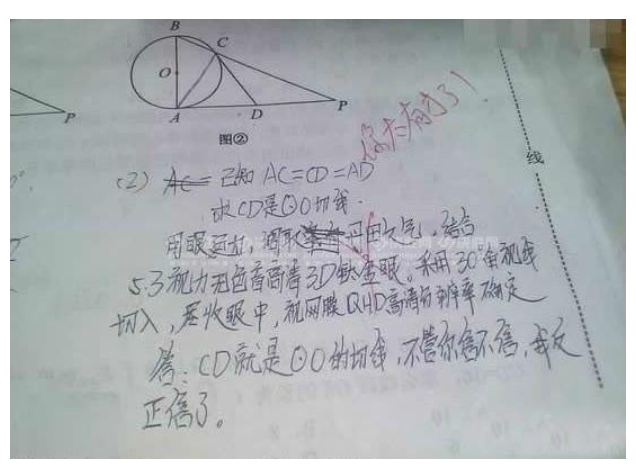 B
C
O
A
D
P
P
图②
你太有才了!
线
(2) AC= 已知 AC=CD=AD
求CD是⊙O切线.
用眼运力,调取丹田之气,结合
5.3视力无色盲高清3D钛金眼。采用30°角视线
切入,尽收眼中,视网膜QHD高清分辨率确定
答:CD就是⊙O的切线,不管你信不信,我反
正信了。